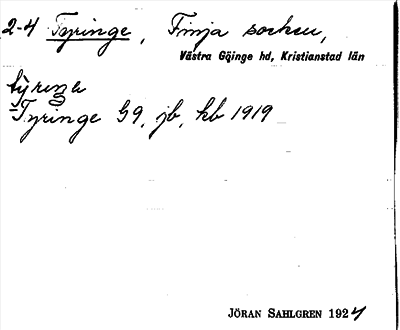 2-4 Tyringe, Finja socken,
Västra Göinge hd, Kristianstad län
týringe
Tyringe G9, jb, kb 1919
JÖRAN SAHLGREN 1924